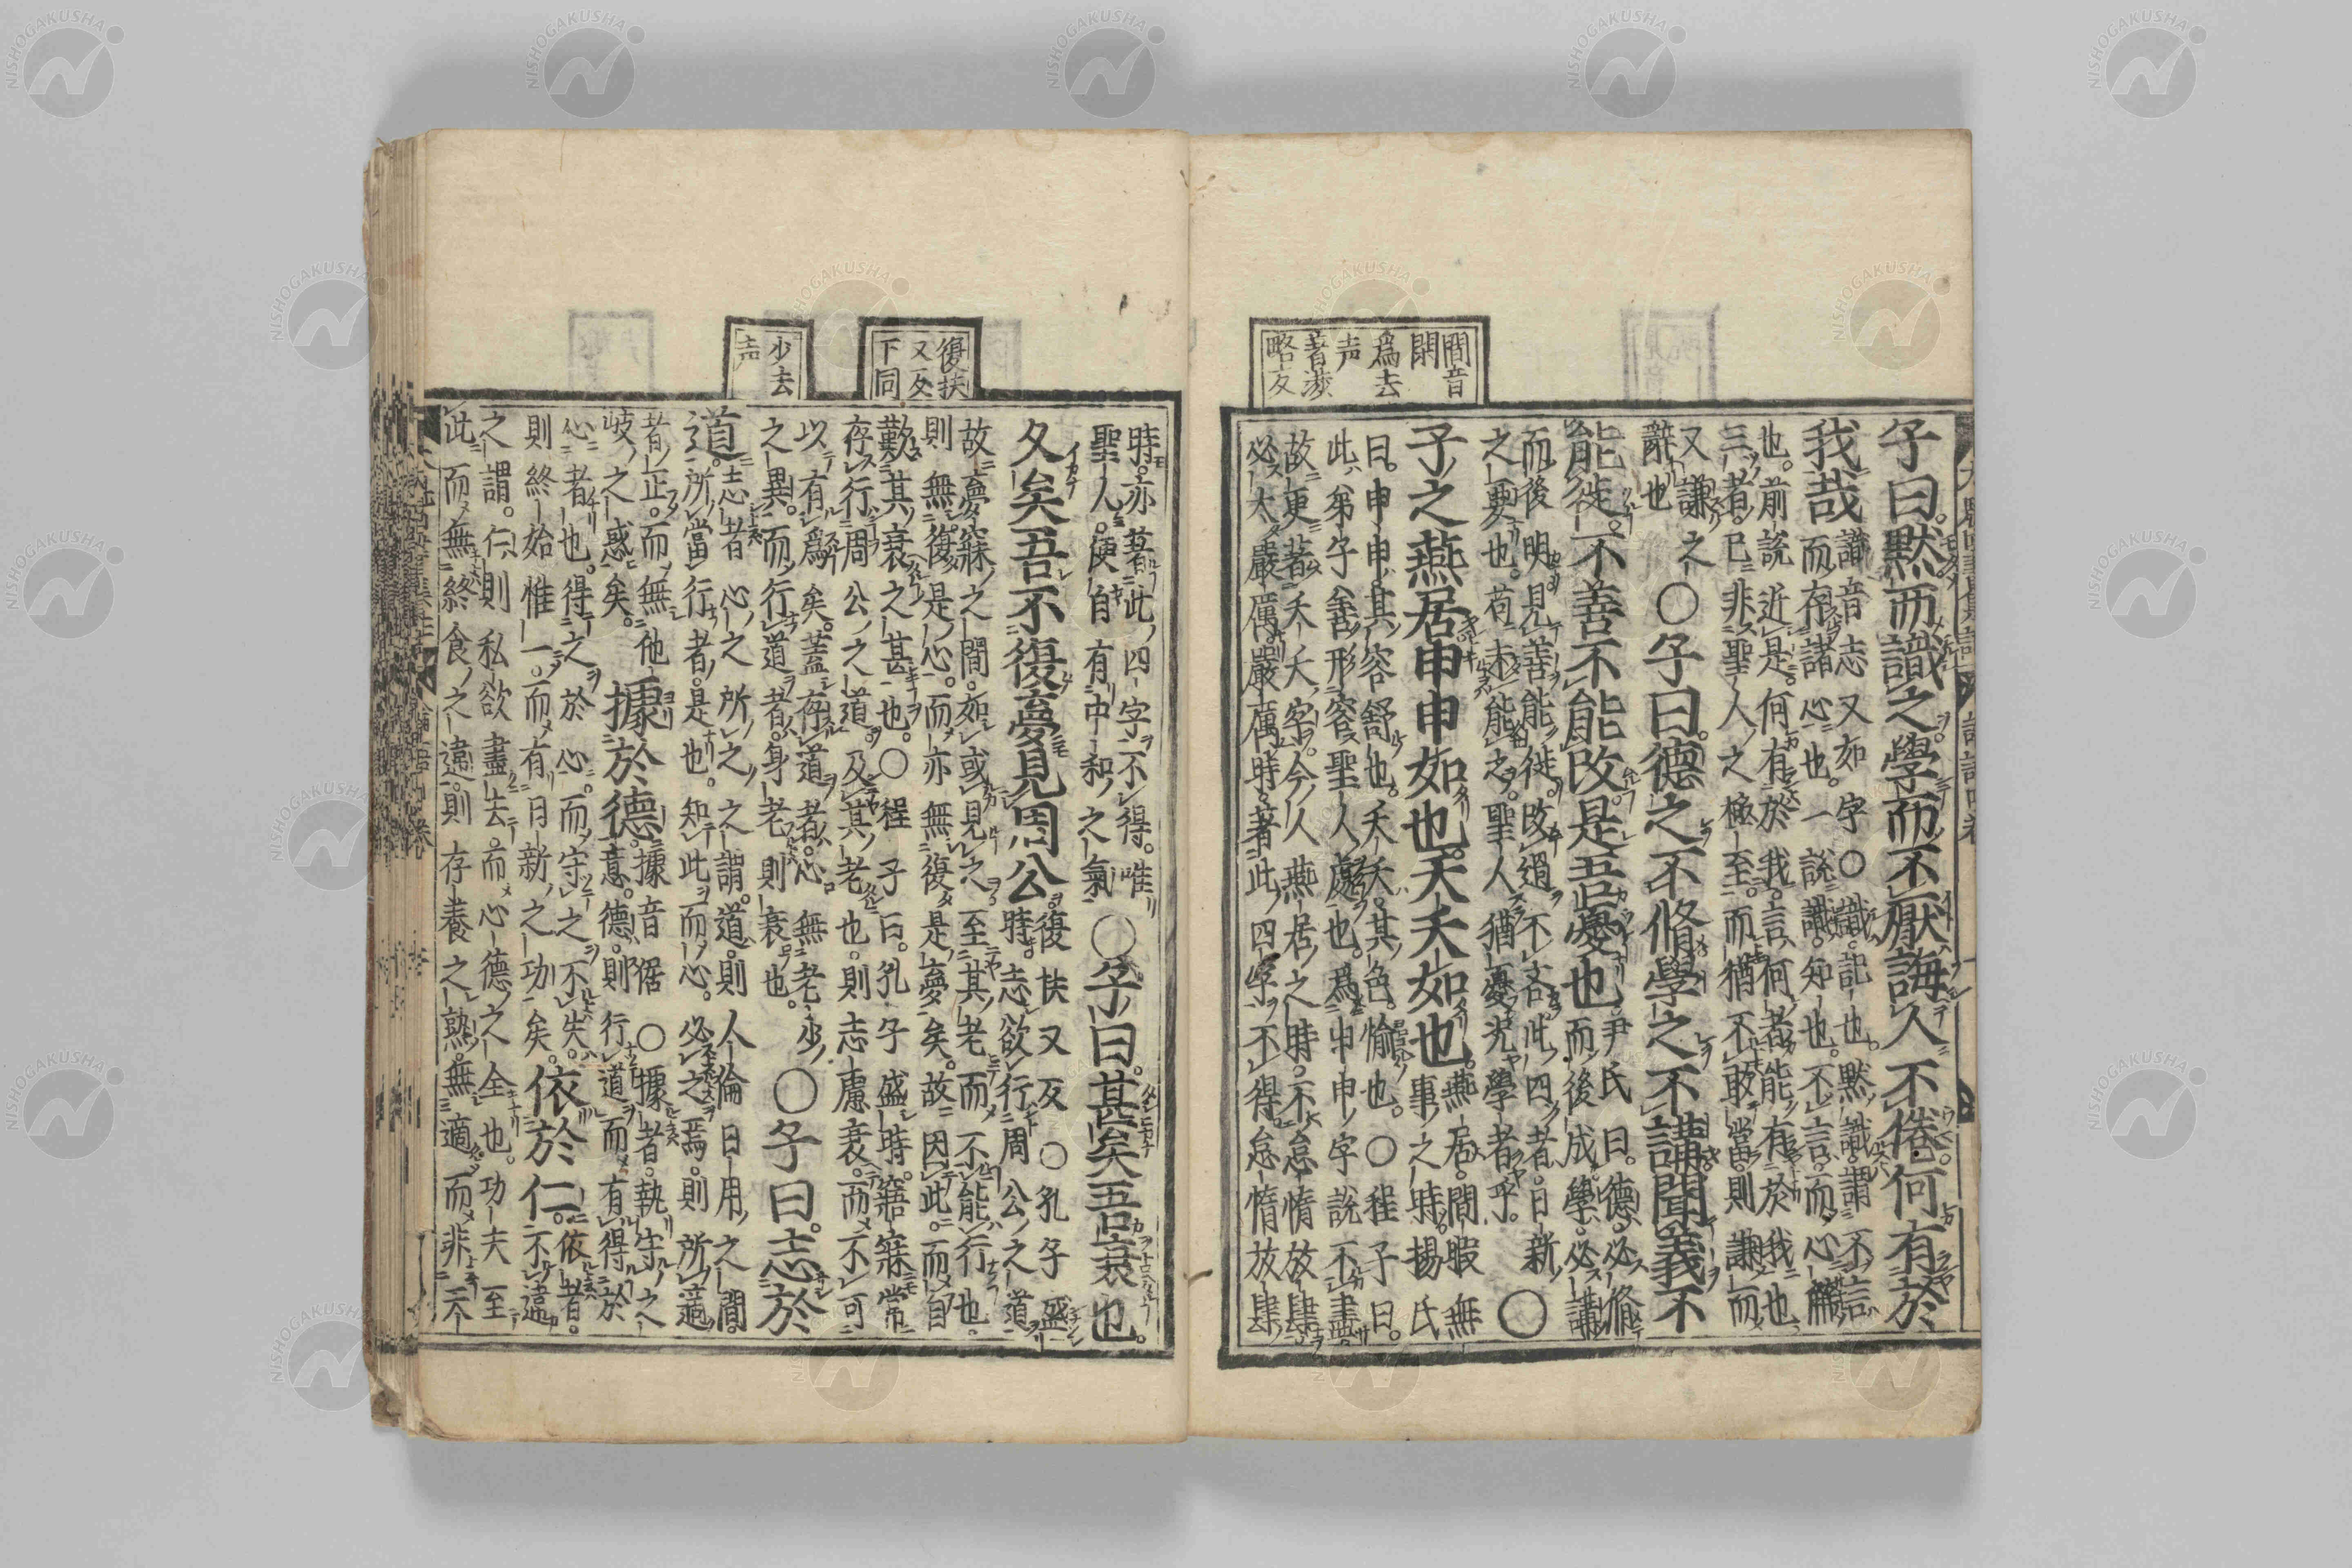 間音
閑
爲去
声
著陟
略反
子曰。默而識之。學而不厭。誨人不倦。何有於
我哉
識音志又如字○識。記也。默識。謂不言
而存諸心也。一說識。知也。不言而心解
也。前說近是。何有於我。言何者能有於我也
三者。已非聖人之極至。而猶不敢當。則謙而
又謙之
辭也
○子曰。德之不脩學之不講。聞義不
能徙。不善不能改。是吾憂也
尹氏曰。德必脩
而後成學。必講
而後明。見善能徙。改過不吝。此四者。日新
之要也。苟未能之。聖人猶憂。況學者乎。
○
子之燕居。申申如也。夭夭如也。
燕居。間暇無
事之時。揚氏
曰。申申。其容舒也。夭夭。其色。愉也。○程子曰。
此弟子善形容聖人處也。爲申申字說不盡
故更著夭夭字。今人燕居之時。不怠惰放肆
必太嚴厲嚴厲時著此四字不得怠惰放肆
復扶
又反
下同
少去
声
時。亦著此四字不得。唯
聖人。便自有中和之氣
○子曰。甚矣吾衰也。
久矣吾不復夢見周公
復扶又反○孔子盛
時。志欲行周公之道
故夢寐之間。如或見之。至其老而不能行也。
則無復是心。而亦無復是夢矣。故因此。而自
歎其衰之甚也。○程子曰。孔子盛時。寤寐常
存行周公之道。及其老也。則志慮衰。而不可
以有爲矣。蓋存道者。心無老少
之異。而行道者。身老則衰也。
○子曰。志於
道。
志者心之所之之謂。道則人倫日用之間。
所當行者。是也。知此而心。必之焉。則所適
者。正。而無他
岐之惑矣。
據於德。
據音倨○據者。執守之
意。德。則行道而有得於
心者也。得之於心。而守之不失。
則終始惟一。而有日新之功矣。
依於仁。
依者。
不違
之謂。仁則私欲盡去。而心德之全也。功夫至
此而無終食之違。則存養之熟。無適而非天